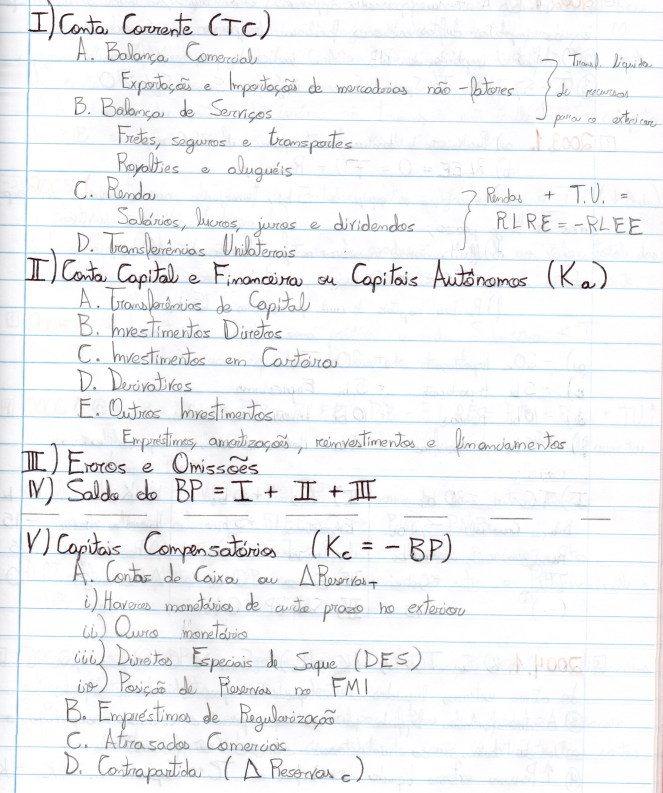 I) Conta Corrente (TC)
A. Balança Comercial
Exportação e Importação de mercadorias não-fatores
B. Balança de Serviços
Fretes, seguros e transportes
Royalties e aluguéis
} Transf. líquida
de recursos
para o exterior
C. Renda
Salários, lucros, juros e dividendos
D. Transferências Unilaterais
} Rendas + T.U. =
RLRE = -RLEE
II) Conta Capital e Financeira ou Capitais Autônomos (Ka)
A. Transferências de Capital
B. Investimentos Diretos
C. Investimentos em Carteira
D. Derivativos
E. Outros Investimentos
Empréstimos, amortizações, reinvestimentos e financiamentos
III) Erros e Omissões
IV) Saldo do BP = I + II + III
V) Capitais Compensatórios (Kc = - BP)
A. Contas de Caixa ou ΔReservas T
i) Haveres monetários de curto prazo no exterior
ii) Ouro monetário
iii) Direitos Especiais de Saque (DES)
iv) Posição de Reservas no FMI
B. Empréstimos de Regularização
C. Atrasados Comerciais
D. Contrapartida (Δ Reservas c)